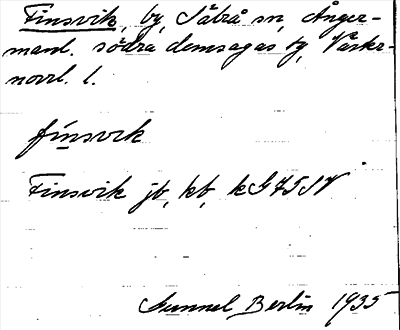 Finsvik, by, Säbrå sn, Ånger-
manl. södra domsagas tg, Väster-
norrl. l.
finsvik
Finsvik jb, kb, k G75SV
Gunnel Berlin 1935